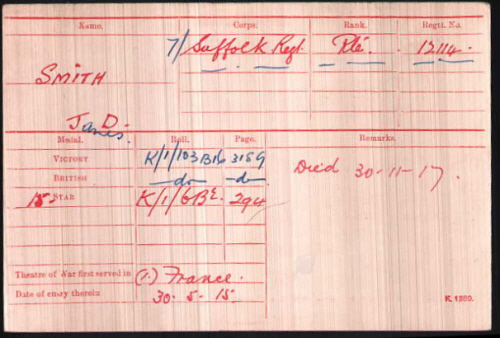 Name. Corps. Rank. Regtl. No.
7/ Suffolk Regt. Pte. 12114.
SMITH
J D.
James.
Medal. Roll. Page. Remarks.
VICTORY K/1/103B16 3159
BRITISH -do- -do-
15 STAR K/1/6BE. 294
Died 30-11-17.
Theatre of War first served in (1.) France.
Date of entry therein 30-5-15.
K. 1380.